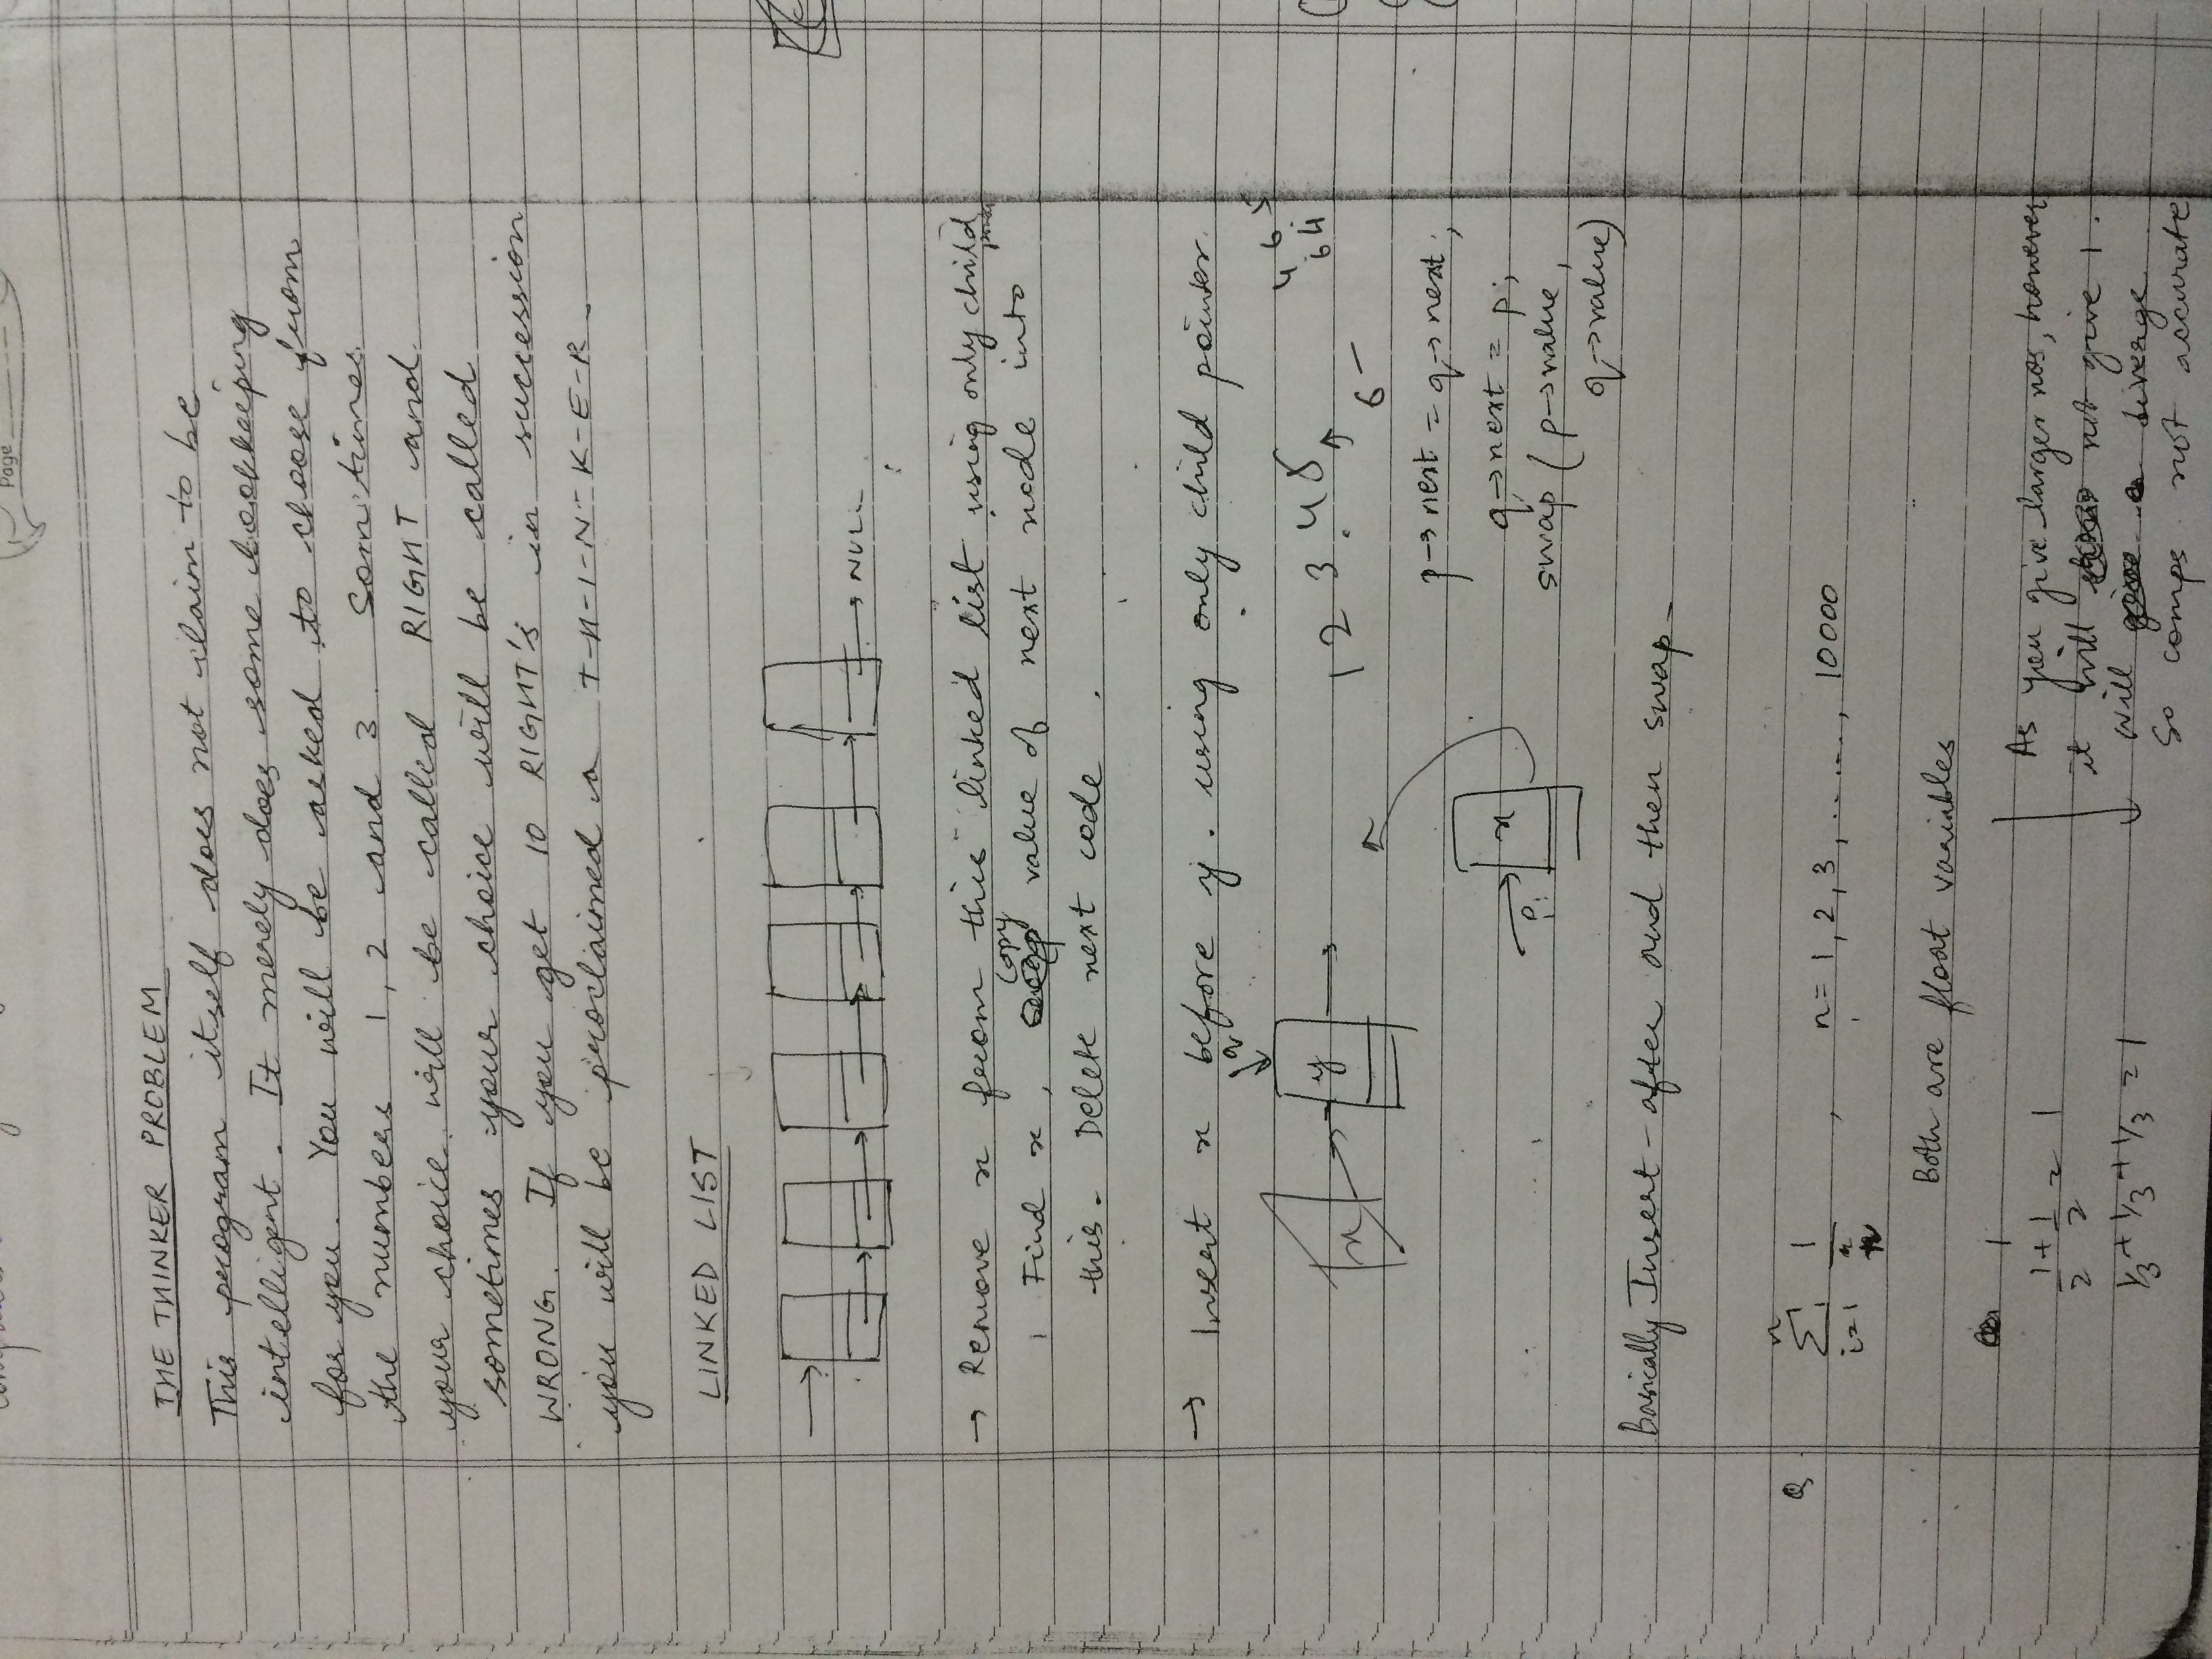 Page
THE THINKER PROBLEM
This program itself does not claim to be
intelligent. It merely does some bookkeeping
for you. You will be asked to choose from
the numbers 1, 2 and 3. Sometimes
your choice will be called RIGHT and
sometimes your choice will be called
WRONG. If you get 10 RIGHT's in succession
you will be proclaimed a T-H-I-N-K-E-R.
LINKED LIST
→ NULL
→ Remove x from this linked list using only child
Find x, copy value of next node into
this. Delete next code.
→ Insert x before y. using only child pointer.
q
x → y →
1 2 3 4 5
6
4 6 5
6 4
p→next = q→next;
x
p
q→next = p;
swap (p→value,
q→value)
Basically Insert-after and then swap.
Q n
Σ 1
i=1 n , n = 1, 2, 3, ......, 10000
Both are float variables
1
1/2 + 1/2 = 1
1/3 + 1/3 + 1/3 = 1
As you give larger nos, however
it will not give 1.
Will diverge
So comps not accurate